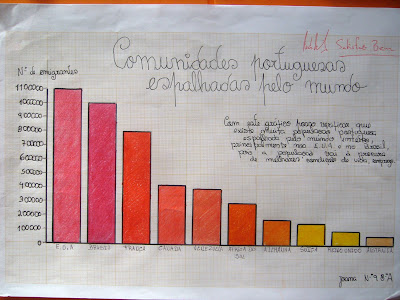 Satisfaz Bem
Comunidades portuguesas
espalhadas pelo mundo
Nº de emigrantes
1100000
1000000
900000
800000
700000
600000
500000
400000
300000
200000
100000
0
Com este gráfico posso verificar que
existe muita população portuguesa
espalhada pelo mundo inteiro,
principalmente nos E.U.A e no Brasil,
pois a população vai à procura
de melhores condições de vida, emprego.
E.U.A BRASIL FRANÇA CANADÁ VENEZUELA ÁFRICA DO ALEMANHA SUIÇA REINO UNIDO AUSTRÁLIA
SUL
Joana Nº9 8ºA